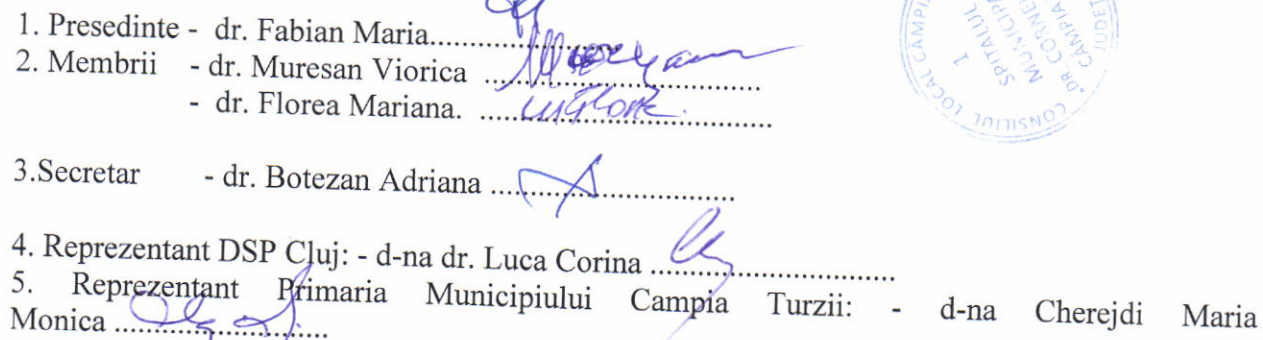 1. Presedinte - dr. Fabian Maria....................
2. Membrii - dr. Muresan Viorica ....................................
- dr. Florea Mariana. ......................................
3.Secretar - dr. Botezan Adriana ...............................
4. Reprezentant DSP Cluj: - d-na dr. Luca Corina ................................
5. Reprezentant Primaria Municipiului Campia Turzii: - d-na Cherejdi Maria
Monica ............................
CONSILIUL LOCAL CÂMPI
SPITALUL
MUNICIPA
"DR. CORNE
CÂMPIA
JUDEȚ
1